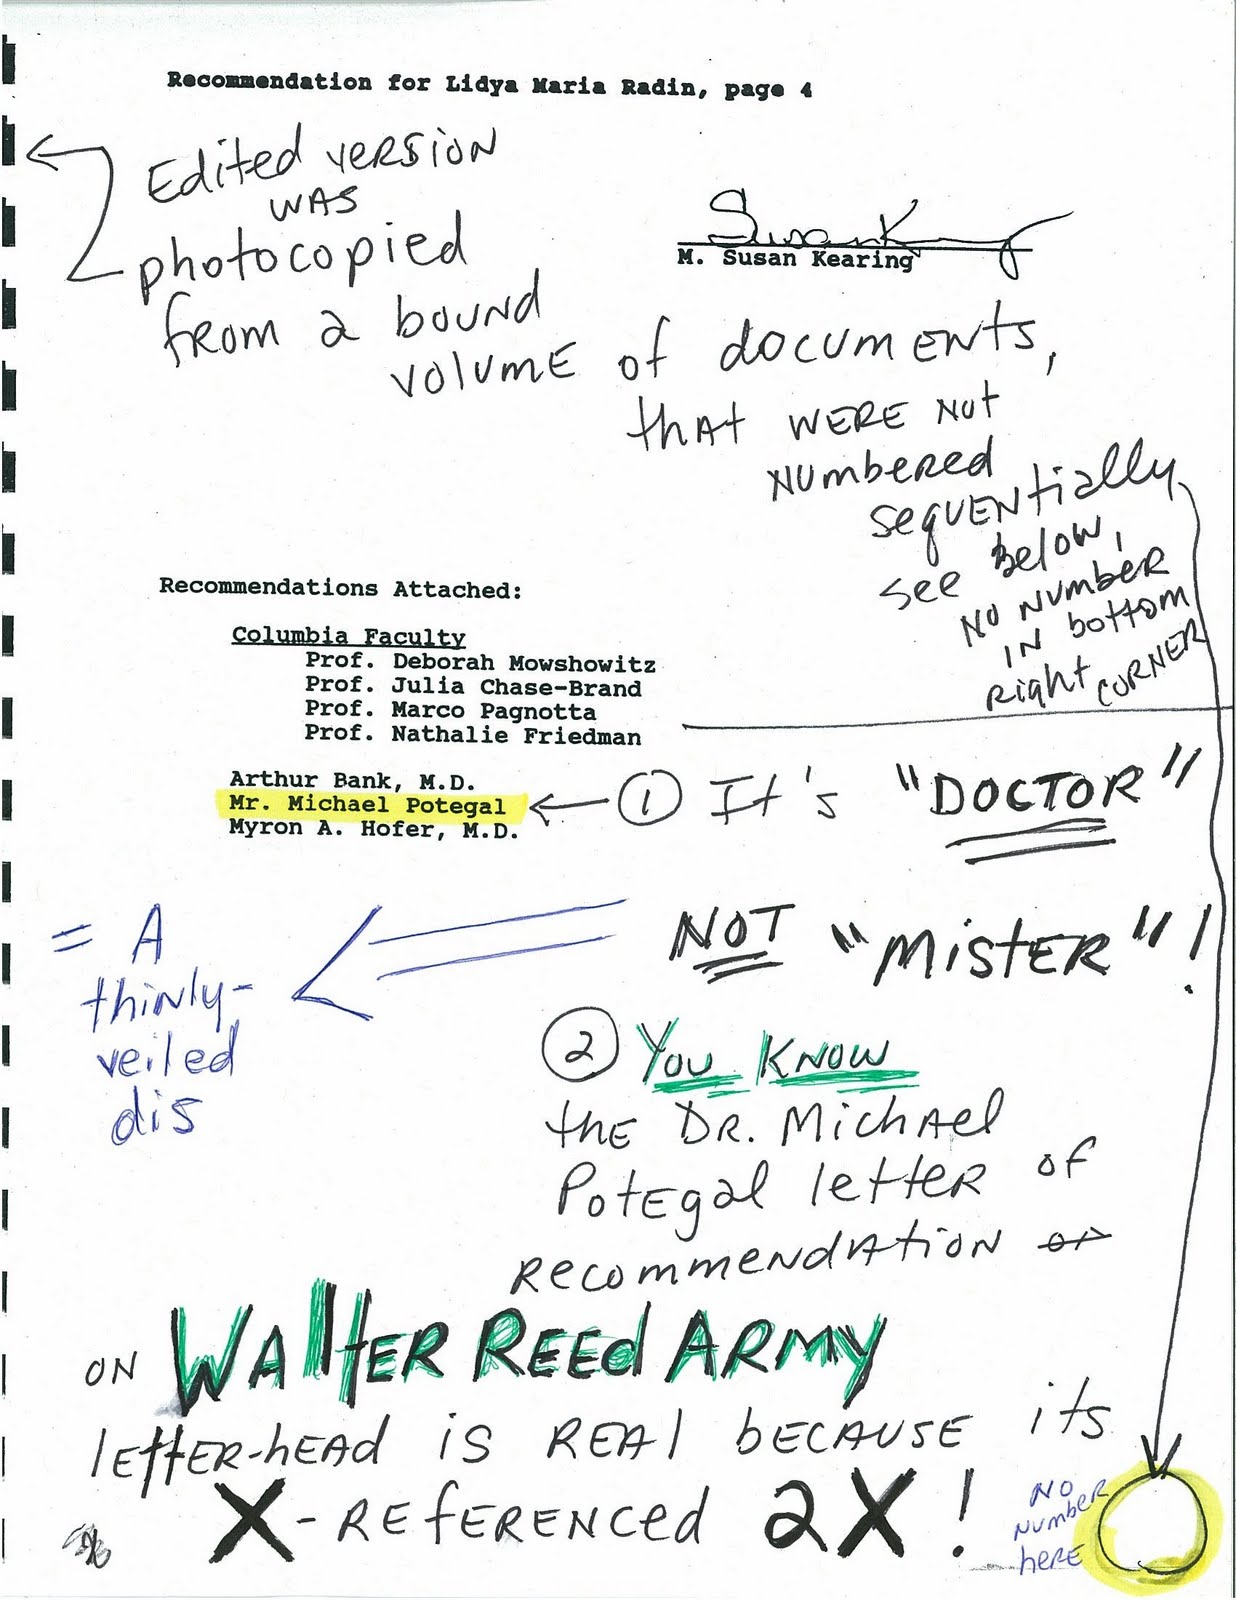 Recommendation for Lidya Maria Radin, page 4
Edited version
was
photocopied
from a bound
volume of documents,
that were not
numbered
sequentially
see below,
no number
in bottom
right corner
Susan Kearing
M. Susan Kearing
Recommendations Attached:
Columbia Faculty
Prof. Deborah Mowshowitz
Prof. Julia Chase-Brand
Prof. Marco Pagnotta
Prof. Nathalie Friedman
Arthur Bank, M.D.
Mr. Michael Potegal
Myron A. Hofer, M.D.
1 It's "DOCTOR"
NOT "Mister"!
= A
thinly-
veiled
dis
2 You Know
the Dr. Michael
Potegal letter of
recommendation on
on Walter Reed Army
letter-head is real because its
X-referenced 2X!
no
number
here